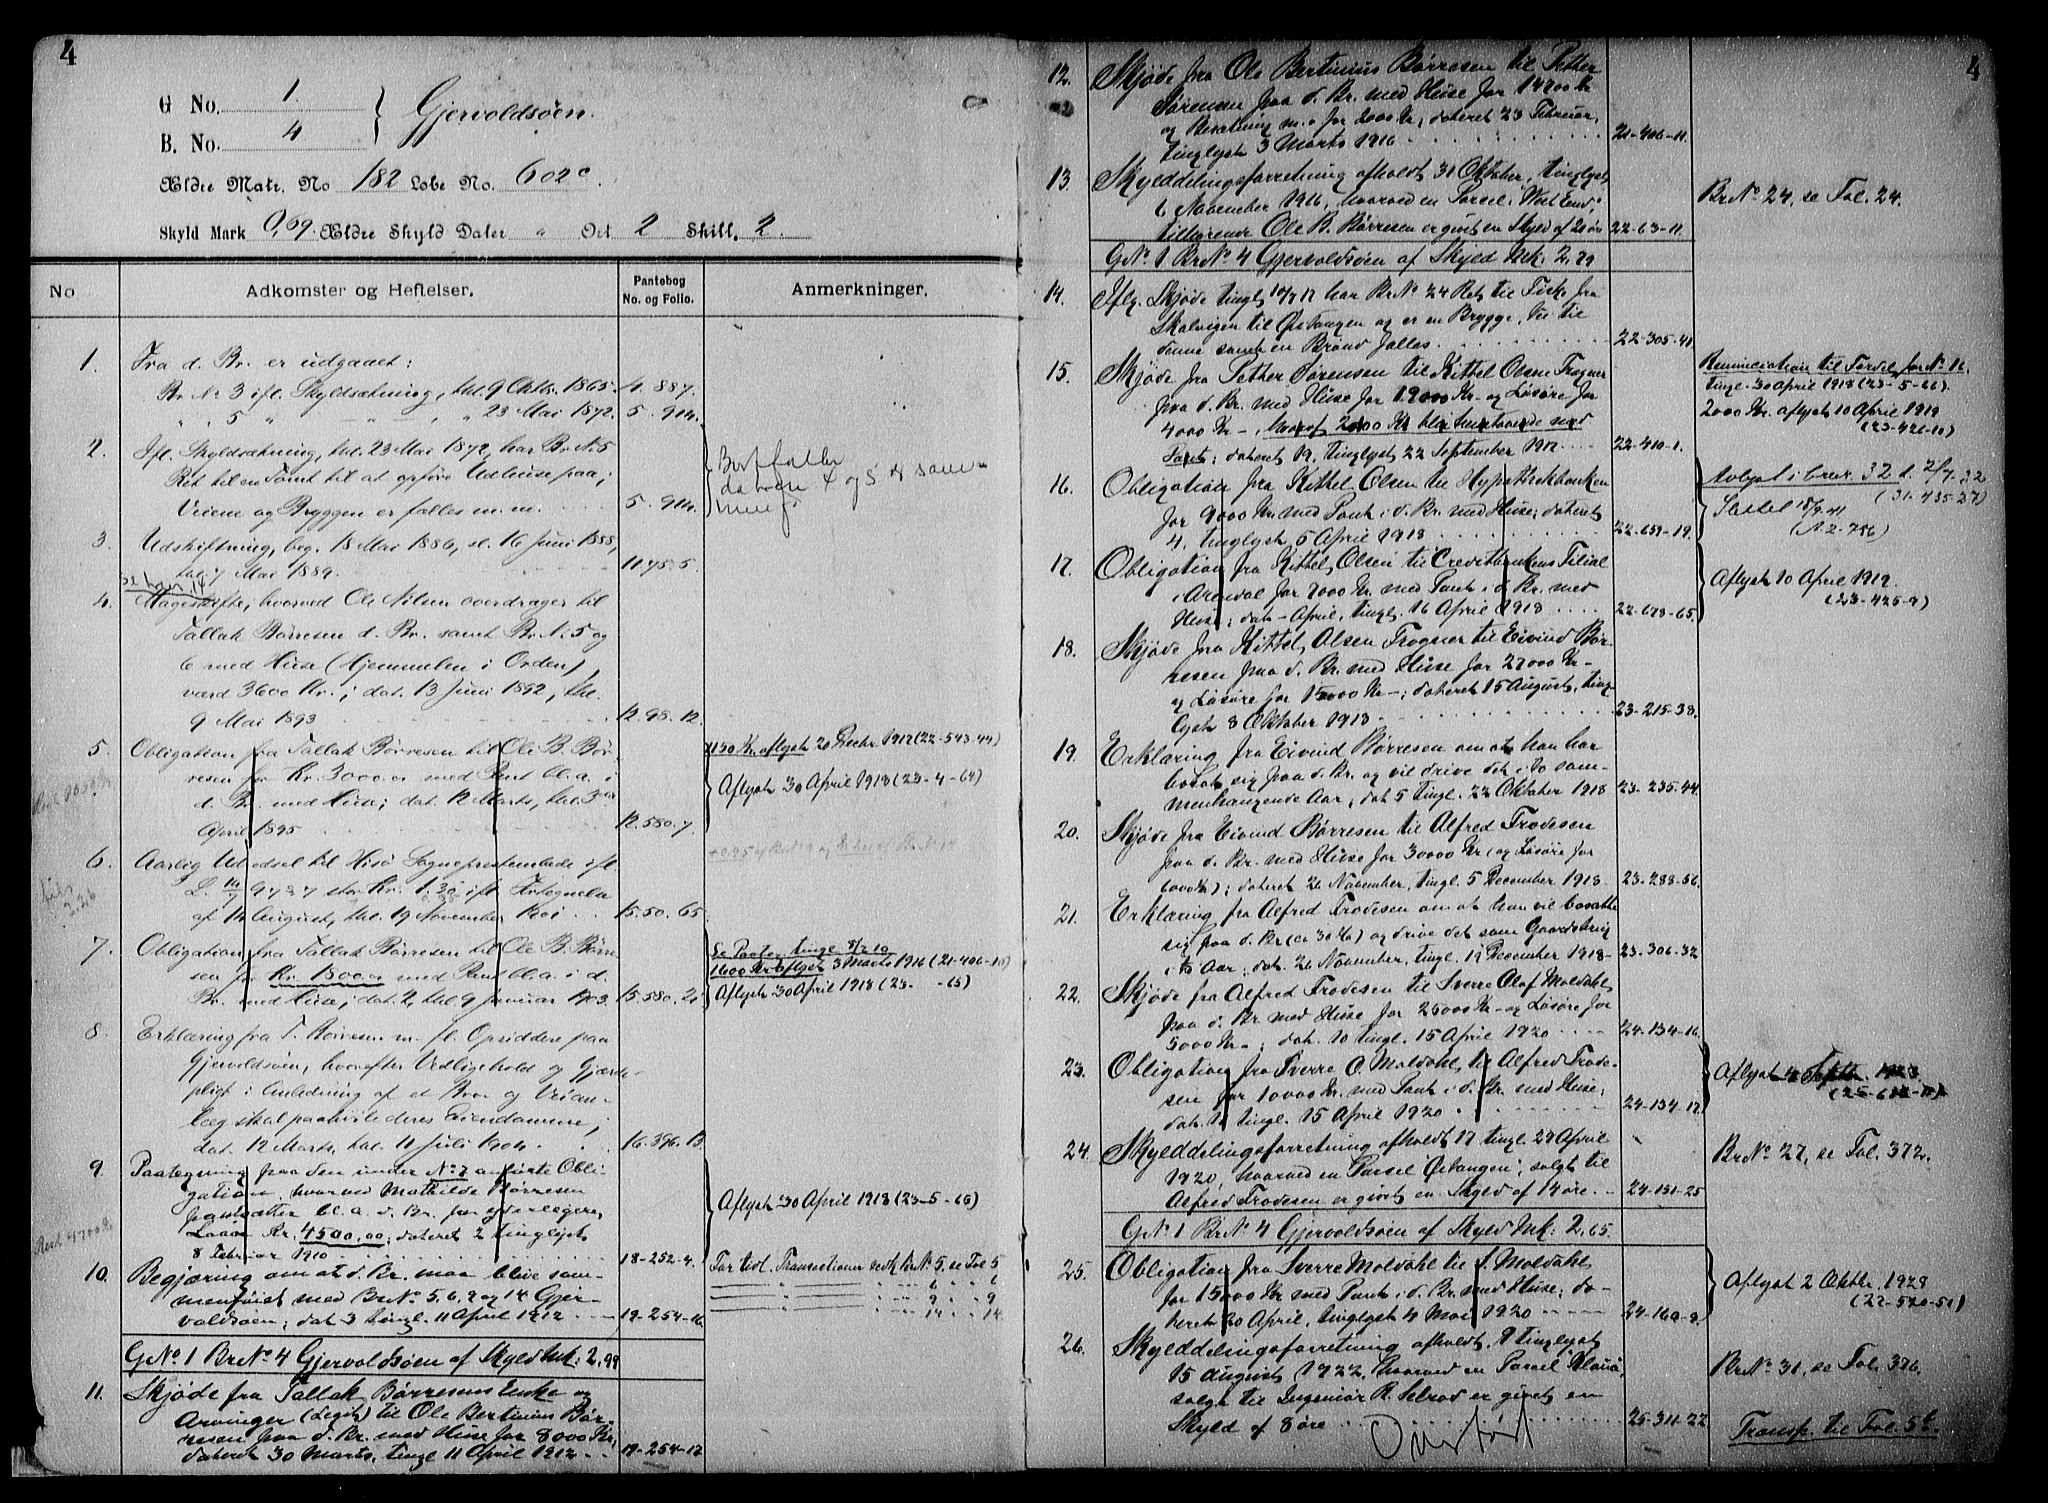 4
G No. 1.
B. No. 4
Gjervoldsöen.
Ældre Matr. No 182 Løbe No. 602c.
Skyld Mark 0,69. Ældre Skyld Daler " Ort 2 Skill. 2
No
Adkomster og Heftelser.
Pantebog
No. og Folio.
Anmerkninger.
1. Fra d. Br. er udgaaet:
Br. No 3 ifl. Skyldsætning, thl. 9 Oktbr. 1865. 4. 887.
" " 5 " " " " 23 Mai 1872. 5. 914.
2. Ifl. Skyldsætning, thl. 23 Mai 1872, har Br. No. 5
Ret til en Tomt til at opføre Udhuse paa;
Veiene og Bryggen er fælles m. m. 5. 914.
Bortfaller
da brn 4 og 5 er
3. Udskiftning, beg. 18 Mai 1886, sl. 16 Juni 1888,
thl. 7 Mai 1889. 11. 75. 5.
4. Mageskifte, hvorved Ole Nilsen overdrager til
Tallak Børresen d. Br. samt Br. No. 5 og
6 med Huse (Hjemmelen i Orden),
værd 3600 Kr.; dat. 13 Juni 1892, thl.
9 Mai 1893 12. 98. 12.
5. Obligation fra Tallak Børresen til Ole B. Bør-
resen for Kr. 3000.00 med Pant bl. a. i
d. Br. med Huse; dat. 12 Marts, thl. 3
April 1895 12. 580. 7.
1150 Kr. aflyst 20 Decbr 1917 (22-543-44)
Aflyst 30 April 1918 (23-4-64)
6. Aarlig Udredsel til Hisö Sogneprestembede ifl.
L. 14/7 97 § 7 stor Kr. 1.30 ifl. Fortegnelse
af 14 August, thl. 19 November 1901 15. 50. 65.
7. Obligation fra Tallak Børresen til Ole B. Børre-
sen for Kr. 1800.00 med Pant bl. a. i d.
Br. med Huse; dat. 2, thl. 9 Januar 1903. 15. 580. 21
Se Paategn. tingl. 8/2 10
1600 Kr aflyst 3 Marts 1916 (21-406-10)
Aflyst 30 April 1918 (23- -65)
8. Erklæring fra T. Børresen m. fl. Opsiddere paa
Gjervoldsöen, hvorefter Vedligehold og Gjærde-
pligt i Anledning af et Bro og Veian-
læg skal paahvile deres Eiendomme;
dat. 12 Marts, thl. 11 Juli 1904. 16. 396. 13
9. Paategning paa den under No 7 anførte Obli-
gation, hvorved Mathilde Børresen
pantsætter bl. a. d. Br. for yderligere
Laan Kr. 4500,00; dateret 2 tinglyst
8 Februar 1910 18-252-4.
Aflyst 30 April 1918 (23-5-65)
Rest 4700 Kr
10. Begjæring om at d. Br. maa blive sam-
menføiet med Br No 5, 6, 9 og 14 Gjer-
voldsöen; dat. 3 tingl. 11 April 1912 19-254-16
For tidl. Transactioner vedk Br No 5, se Fol 5
" " " " 6 " 6
" " " " 9 " 9
" " " " 14 " 14.
G No 1 Br No 4 Gjervoldsöen af Skyld Mk: 2,99
11. Skjøde fra Tallak Børresens Enke og
Arvinger (Legit) til Ole Bertinius Bør-
resen paa d. Br. med Huse for 8000 Kr;
dateret 30 Marts, tingl. 11 April 1912 19-254-17
4
12. Skjøde fra Ole Bertinius Børresen til Petter
Sørensen paa d. Br. med Huse for 14200 Kr
og Besætning m. v. for 2000 Kr; dateret 23 Februar,
tinglyst 3 Marts 1916 21-406-11.
13. Skylddelingsforretning afholdt 31 Oktober, tinglyst
6 November 1916, hvorved en Parsel "West End",
tilhørende Ole B. Børresen er givet en Skyld af 20 øre 22-63-11.
Br No 24, se Fol. 24.
G No 1 Br No 4 Gjervoldsöen af Skyld Mk: 2,79
14. Iflg. Skjøde tingl. 10/7 17 har Br No 24 Ret til Fiske fra
Skalvigen til Østangen og er en Brygge, Vei til
denne samt en Brønd fælles. 22-305-41
15. Skjøde fra Petter Sørensen til Kittel Olsen Trogner
paa d. Br. med Huse for 19000 Kr - og Løsøre for
4000 Kr -, hvoraf 2000 Kr bli henstaaende mod
Pant; dateret 19, tinglyst 22 September 1917 22-410-1.
Renunciation til Fordel for No 16.
tingl. 30 April 1918 (23-5-66).
2000 Kr. aflyst 10 April 1919
(23-421-10)
16. Obligation fra Kittel Olsen til Hypothekbanken
for 9000 Kr. med Pant i d. Br. med Huse; dateret
4, tinglyst 5 April 1918 22-659-19.
17. Obligation fra Kittel Olsen til Creditbankens Filial
i Arendal for 7000 Kr. med Pant i d. Br. med
Huse; dat - April, tingl. 16 April 1918 22-678-65.
Aflyst 10 April 1919.
(23-425-9)
18. Skjøde fra Kittel Olsen Trogner til Eivind Bør-
resen paa d. Br. med Huse for 27000 Kr -
og Løsøre for 15000 Kr -; dateret 15 August, ting-
lyst 8 Oktober 1918 23-215-38.
19. Erklæring fra Eivind Børresen om at han har
bosat sig paa d. Br. og vil drive det i 10 sam-
menhængende Aar; dat. 5 tingl. 22 Oktober 1918 23-235-44.
20. Skjøde fra Eivind Børresen til Alfred Frodesen
paa d. Br. med Huse for 30000 Kr (og Løsøre for
6000 Kr); dateret 26 November, tingl. 5 December 1918 23-288-56.
21. Erklæring fra Alfred Frodesen om at han vil bosætte
sig paa d. Br (ca 30 Ha) og drive det som Gaardsbrug
i 5 Aar; dat. 26 November, tingl. 19 December 1918 23-306-32
22. Skjøde fra Alfred Frodesen til Sverre Olaf Moldahl
paa d. Br. med Huse for 25000 Kr - og Løsøre for
5000 Kr -; dat. 10 tingl. 15 April 1920 24-134-16.
23. Obligation fra Sverre O. Moldahl til Alfred Frode-
sen for 10000 Kr. med Pant i d. Br. med Huse;
tingl. 15 April 1920 24-134-17.
24. Skylddelingsforretning afholdt 17 tingl. 29 April
1920, hvorved en Parsel "Østangen", solgt til
Alfred Frodesen er givet en Skyld af 14 øre. 24-151-25
Br No 27, se Fol. 372.
G No 1 Br No 4 Gjervoldsöen af Skyld Mk: 2,65.
25. Obligation fra Sverre Moldahl til Moldahl
for 15000 Kr. med Pant i d. Br. med Huse; da-
teret 20 April, tinglyst 4 Mai 1920 24-160-9.
Aflyst 2 Oktbr. 1928
26. Skylddelingsforretning afholdt 8 tinglyst
15 August 1922, hvorved en Parsel
solgt til Ingeniør R. Selrod er givet en
Skyld af 8 øre 25-311-22
Br No 31, se Fol. 376.
Overført
Transp. til Fol. 5b.